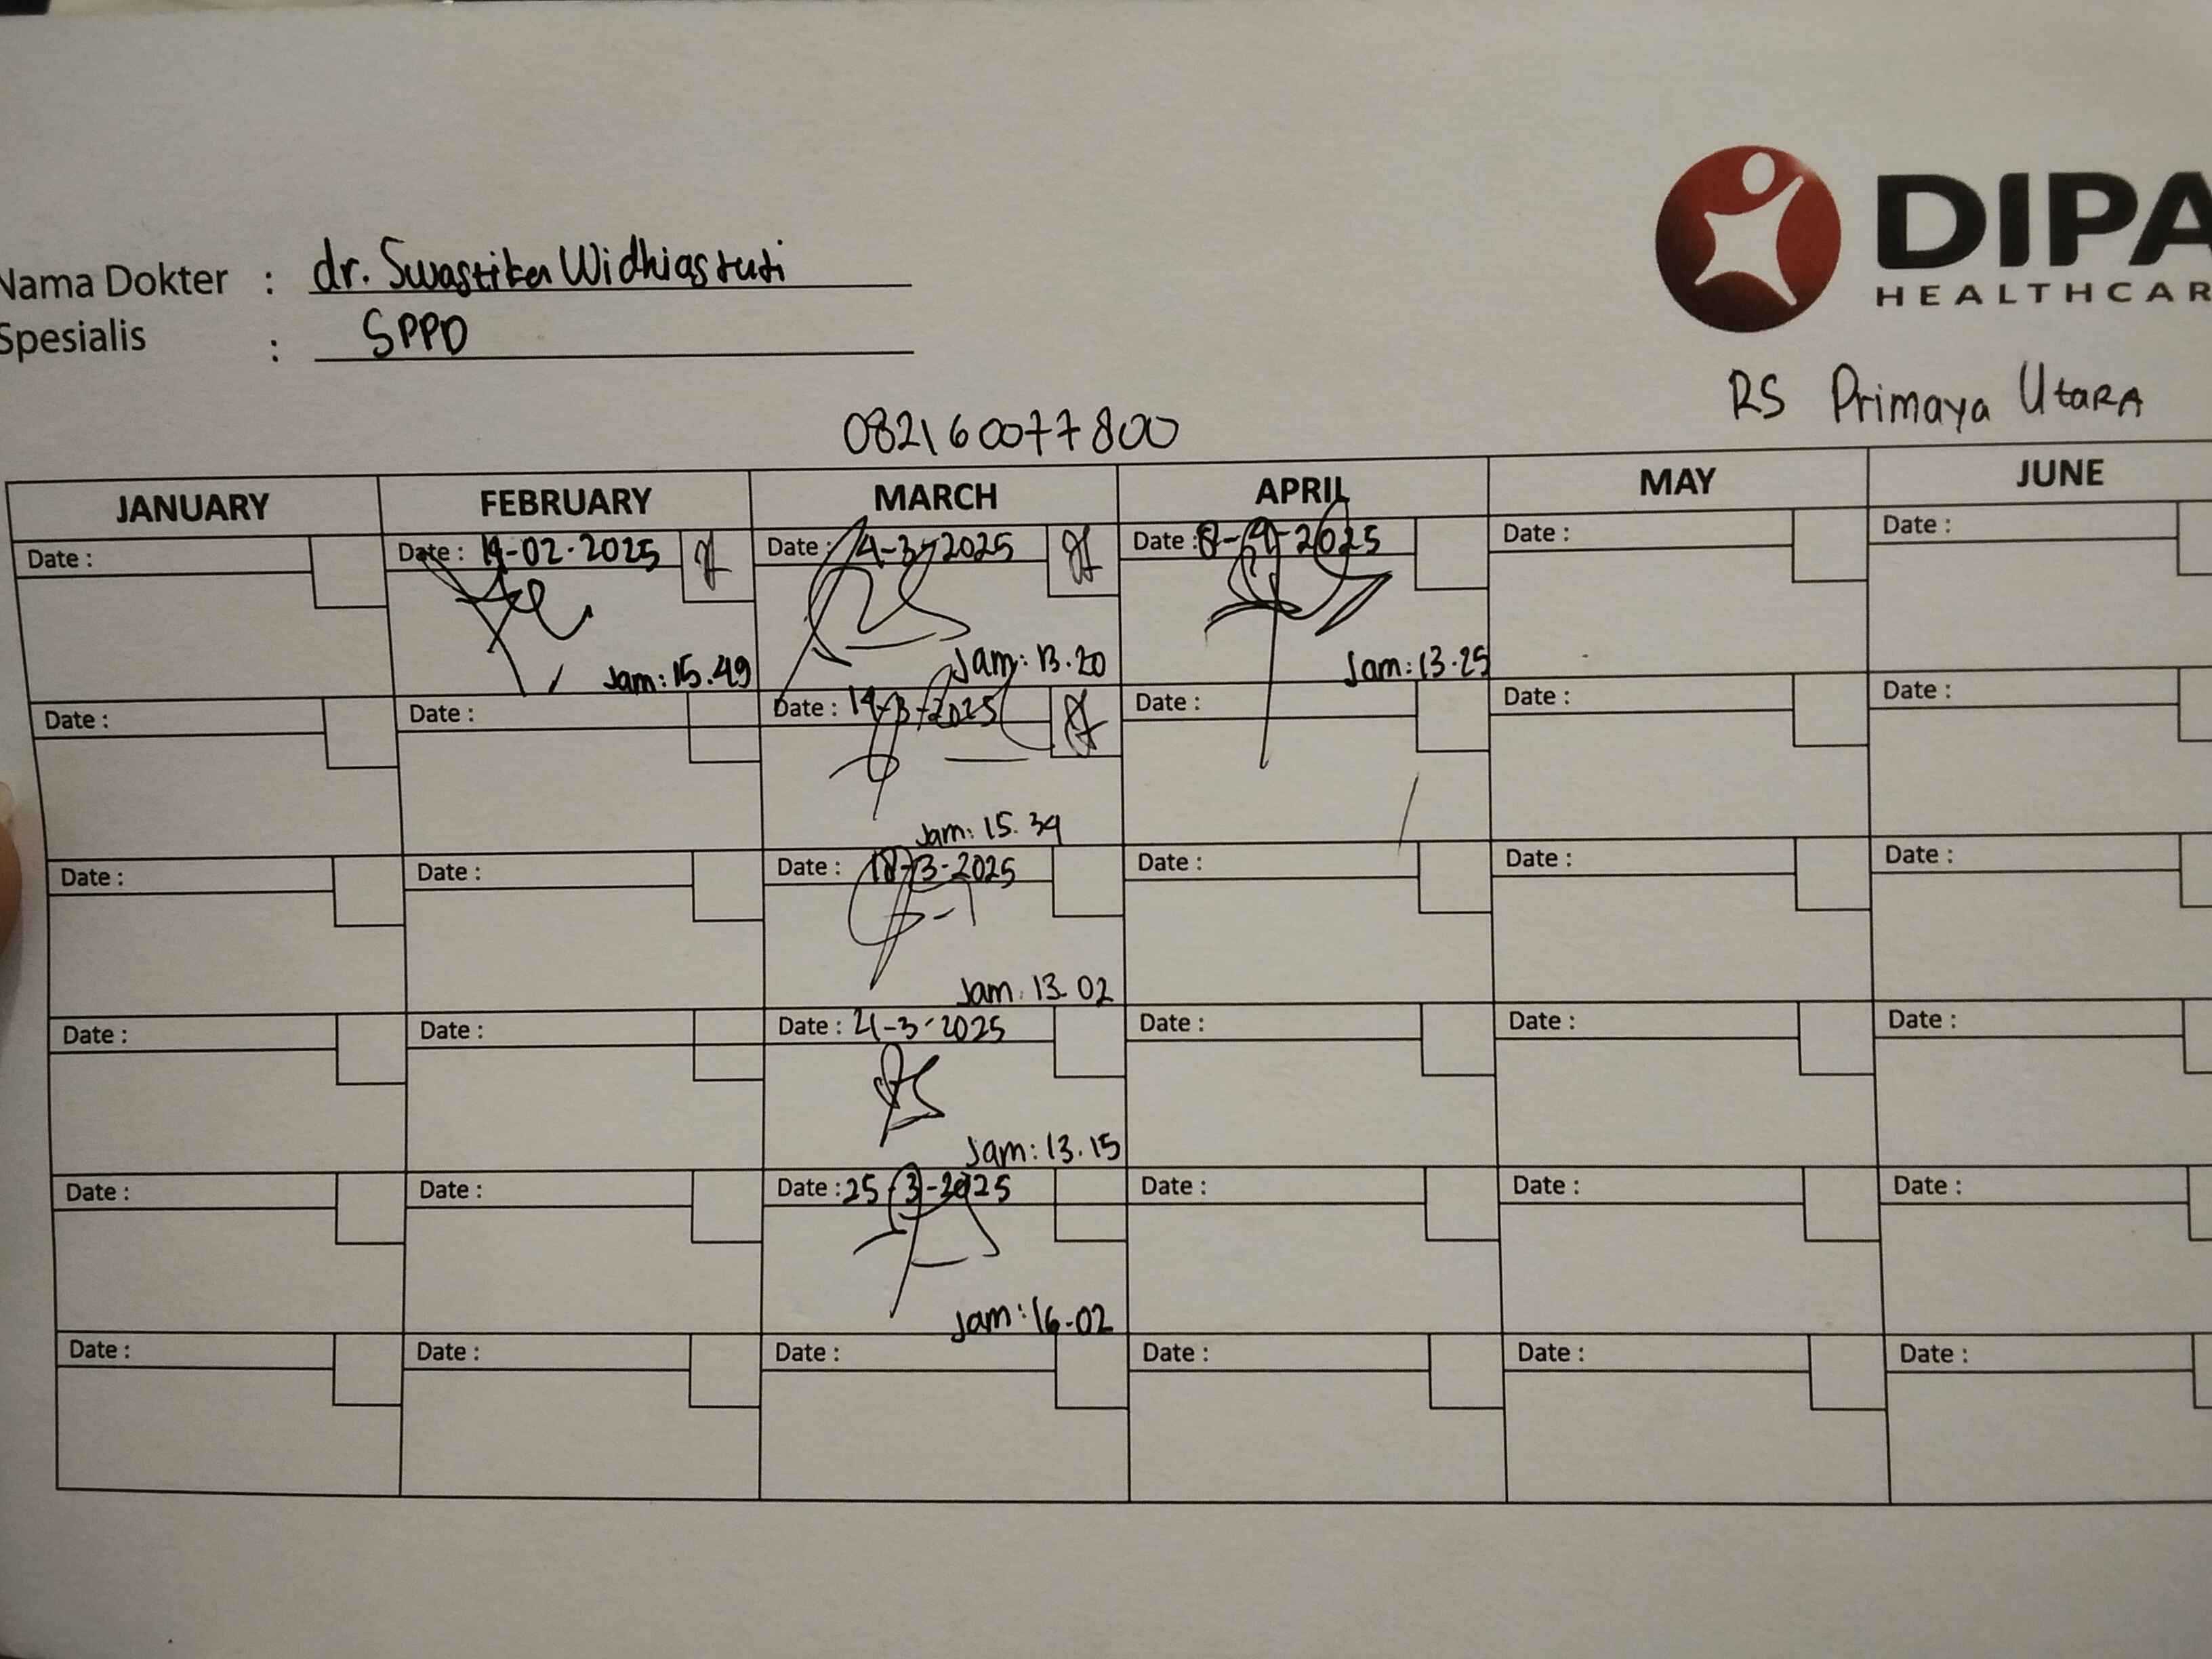 DIPA
HEALTHCAR
Nama Dokter : dr. Swastika Widhiastuti
Spesialis : SPPD
RS Primaya Utara
082160077800
JANUARY FEBRUARY MARCH APRIL MAY JUNE
Date : Date : 14-02-2025 Date : 4-3-2025 Date : 8-4-2025 Date : Date :
Jam: 15.49 Jam: 13.20 Jam: 13.25
Date : Date : Date : 14-3-2025 Date : Date : Date :
Jam: 15.34
Date : Date : Date : 18-3-2025 Date : Date : Date :
Jam: 13.02
Date : Date : Date : 21-3-2025 Date : Date : Date :
Jam: 13.15
Date : Date : Date : 25-3-2025 Date : Date : Date :
Jam: 16.02
Date : Date : Date : Date : Date : Date :